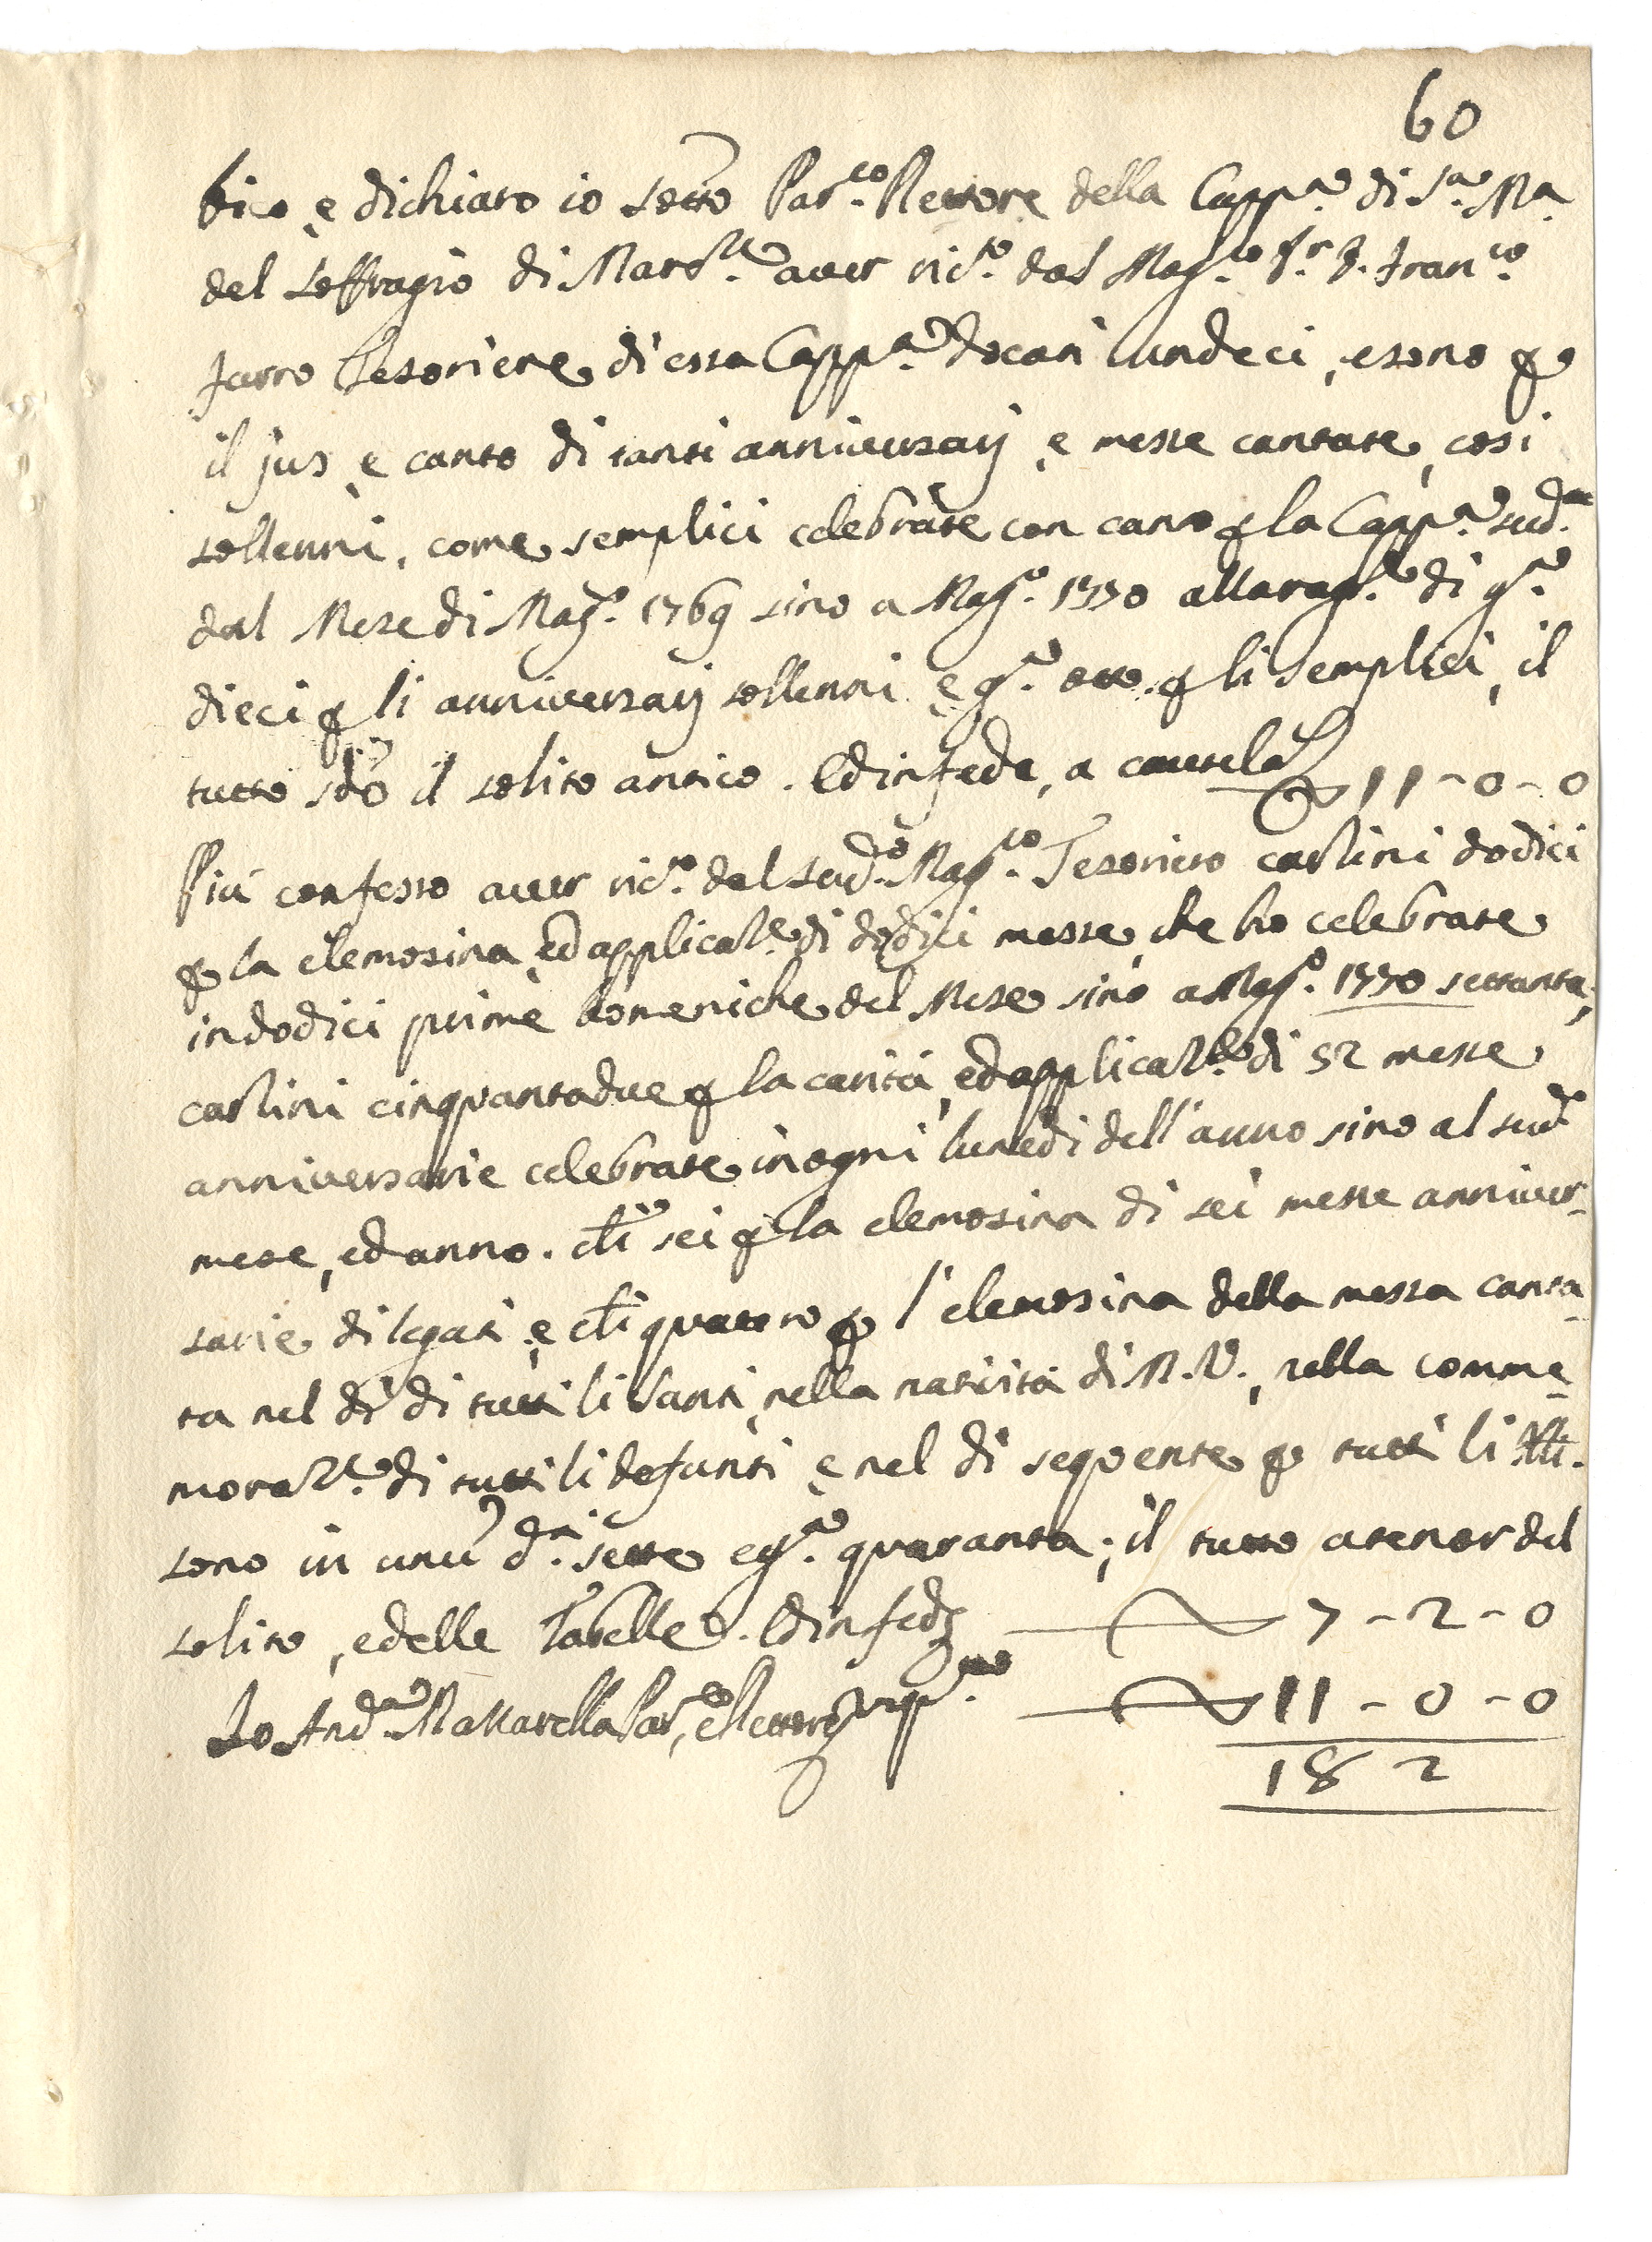 60
Dico, e dichiaro io sotto Par.co Rettore della Capp.a di S.a Ma.
del Soffragio di aver ric.o dal Mag.co S.r D. Fran.co
Farro Tesoriere di essa Capp.a docati undeci, e sono p
il jus, e canto di tanti anniversarij, e messe cantate, così
sollenni, come semplici celebrate con canto p la Capp.a sud.a
dal Mese di Mag.o 1769 sino a Mag.o 1770 alla rag.e di g.a
dieci p li anniversarij sollenni, e g.a otto p li semplici, il
tutto sdo il solito antico. Ed in fede, a cautela 11-0-0
Più confesso aver ric.o dal sud.o Mag.co Tesoriero carlini dodici
p la elemosina, ed applicaz.e di dodici messe, che ho celebrate
in dodici prime domeniche del Mese sino a Mag.o 1770 settanta;
carlini cinquantadue p la carità, ed applicaz.e di 52 messe
anniversarie celebrate in ogni lunedì dell'anno sino al sud.o
mese, ed anno. Cti sei p la elemosina di sei messe anniver-
sarie di legati, e cti quattro p l'elemosina della messa canta-
ta nel dì di tutti li Santi, nella natività di N.S., nella comme-
moraz.e di tutti li defunti, e nel dì seguente p tutti li
sono in unu d.i sette e g.a quaranta; il tutto a tenor del
solito, e delle Tabelle. Ed in fede 7-2-0
Io And.a Mattarella Par.co e Rettore 11-0-0
18 2